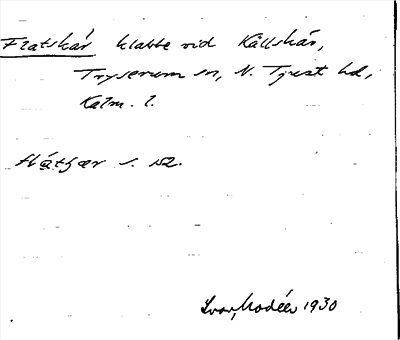 Flatskär klabbe vid Källskär,
Tryserum sn, N. Tjust hd,
Kalm. l.
flátʃær s. 12.
Ivar Modéer 1930